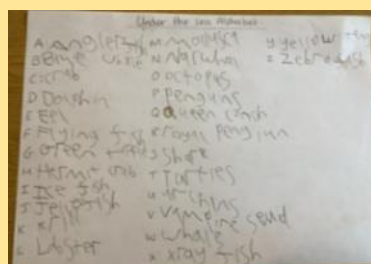 Under the sea Alphabet
A Angler fish
B Blue
C crab
D Dolphin
E Eel
F Flying fish
G Green
H Hermit crab
I Ice fish
J Jelly fish
K Krill
L Lobster
M Mollusk
N Narwhal
O octopus
P Penguins
Q Queen conch
R royal penguin
S Shark
T Turtles
U urchins
V Vampire squid
W whale
X xray fish
Y yellow
Z Zebra fish